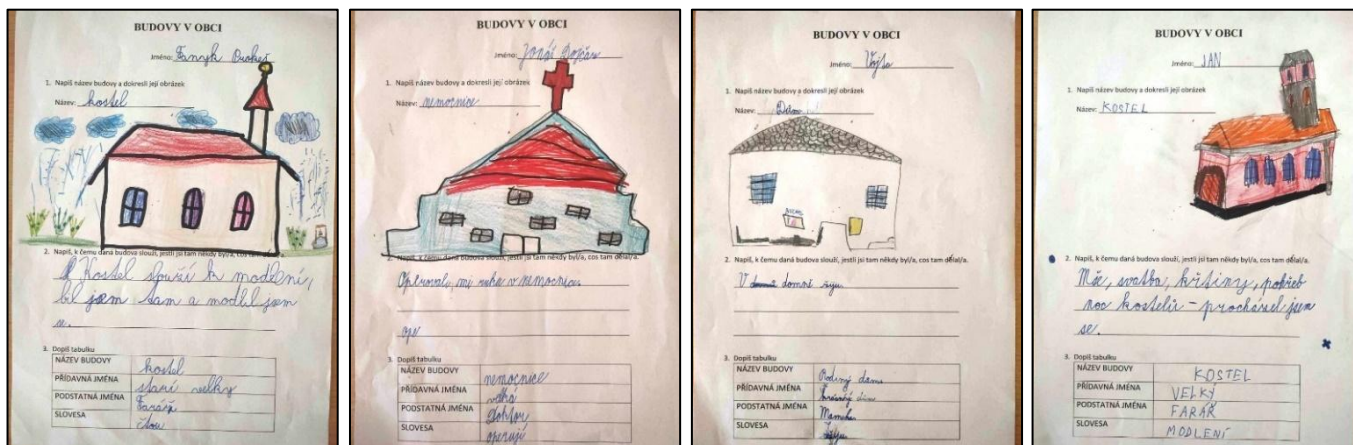 BUDOVY V OBCI
Jméno: Fanyk
1. Napiš název budovy a dokresli její obrázek
Název: kostel
2. Napiš, k čemu daná budova slouží, jestli jsi tam někdy byl/a, cos tam dělal/a.
Kostel slouží k modlení,
bl jsem tam a modlil jsem
se.
3. Dopiš tabulku
NÁZEV BUDOVY kostel
PŘÍDAVNÁ JMÉNA starí velky
PODSTATNÁ JMÉNA Farář
SLOVESA čtou
BUDOVY V OBCI
Jméno: Jonáš
1. Napiš název budovy a dokresli její obrázek
Název: nemocnice
2. Napiš, k čemu daná budova slouží, jestli jsi tam někdy byl/a, cos tam dělal/a.
Operovaly mi ruku v nemocnice.
ope
3. Dopiš tabulku
NÁZEV BUDOVY nemocnice
PŘÍDAVNÁ JMÉNA velká
PODSTATNÁ JMÉNA Doktor
SLOVESA operují
BUDOVY V OBCI
Jméno: Vojta
1. Napiš název budovy a dokresli její obrázek
Název:
2. Napiš, k čemu daná budova slouží, jestli jsi tam někdy byl/a, cos tam dělal/a.
V domně žyju
3. Dopiš tabulku
NÁZEV BUDOVY
PŘÍDAVNÁ JMÉNA
PODSTATNÁ JMÉNA Mamka
SLOVESA
BUDOVY V OBCI
Jméno: JAN
1. Napiš název budovy a dokresli její obrázek
Název: KOSTEL
2. Napiš, k čemu daná budova slouží, jestli jsi tam někdy byl/a, cos tam dělal/a.
Mše, svatba, křtiny, pohřeb
noc kostelů – procházel jsem
se.
3. Dopiš tabulku
NÁZEV BUDOVY KOSTEL
PŘÍDAVNÁ JMÉNA VELKÝ
PODSTATNÁ JMÉNA FARÁŘ
SLOVESA MODLENÍ